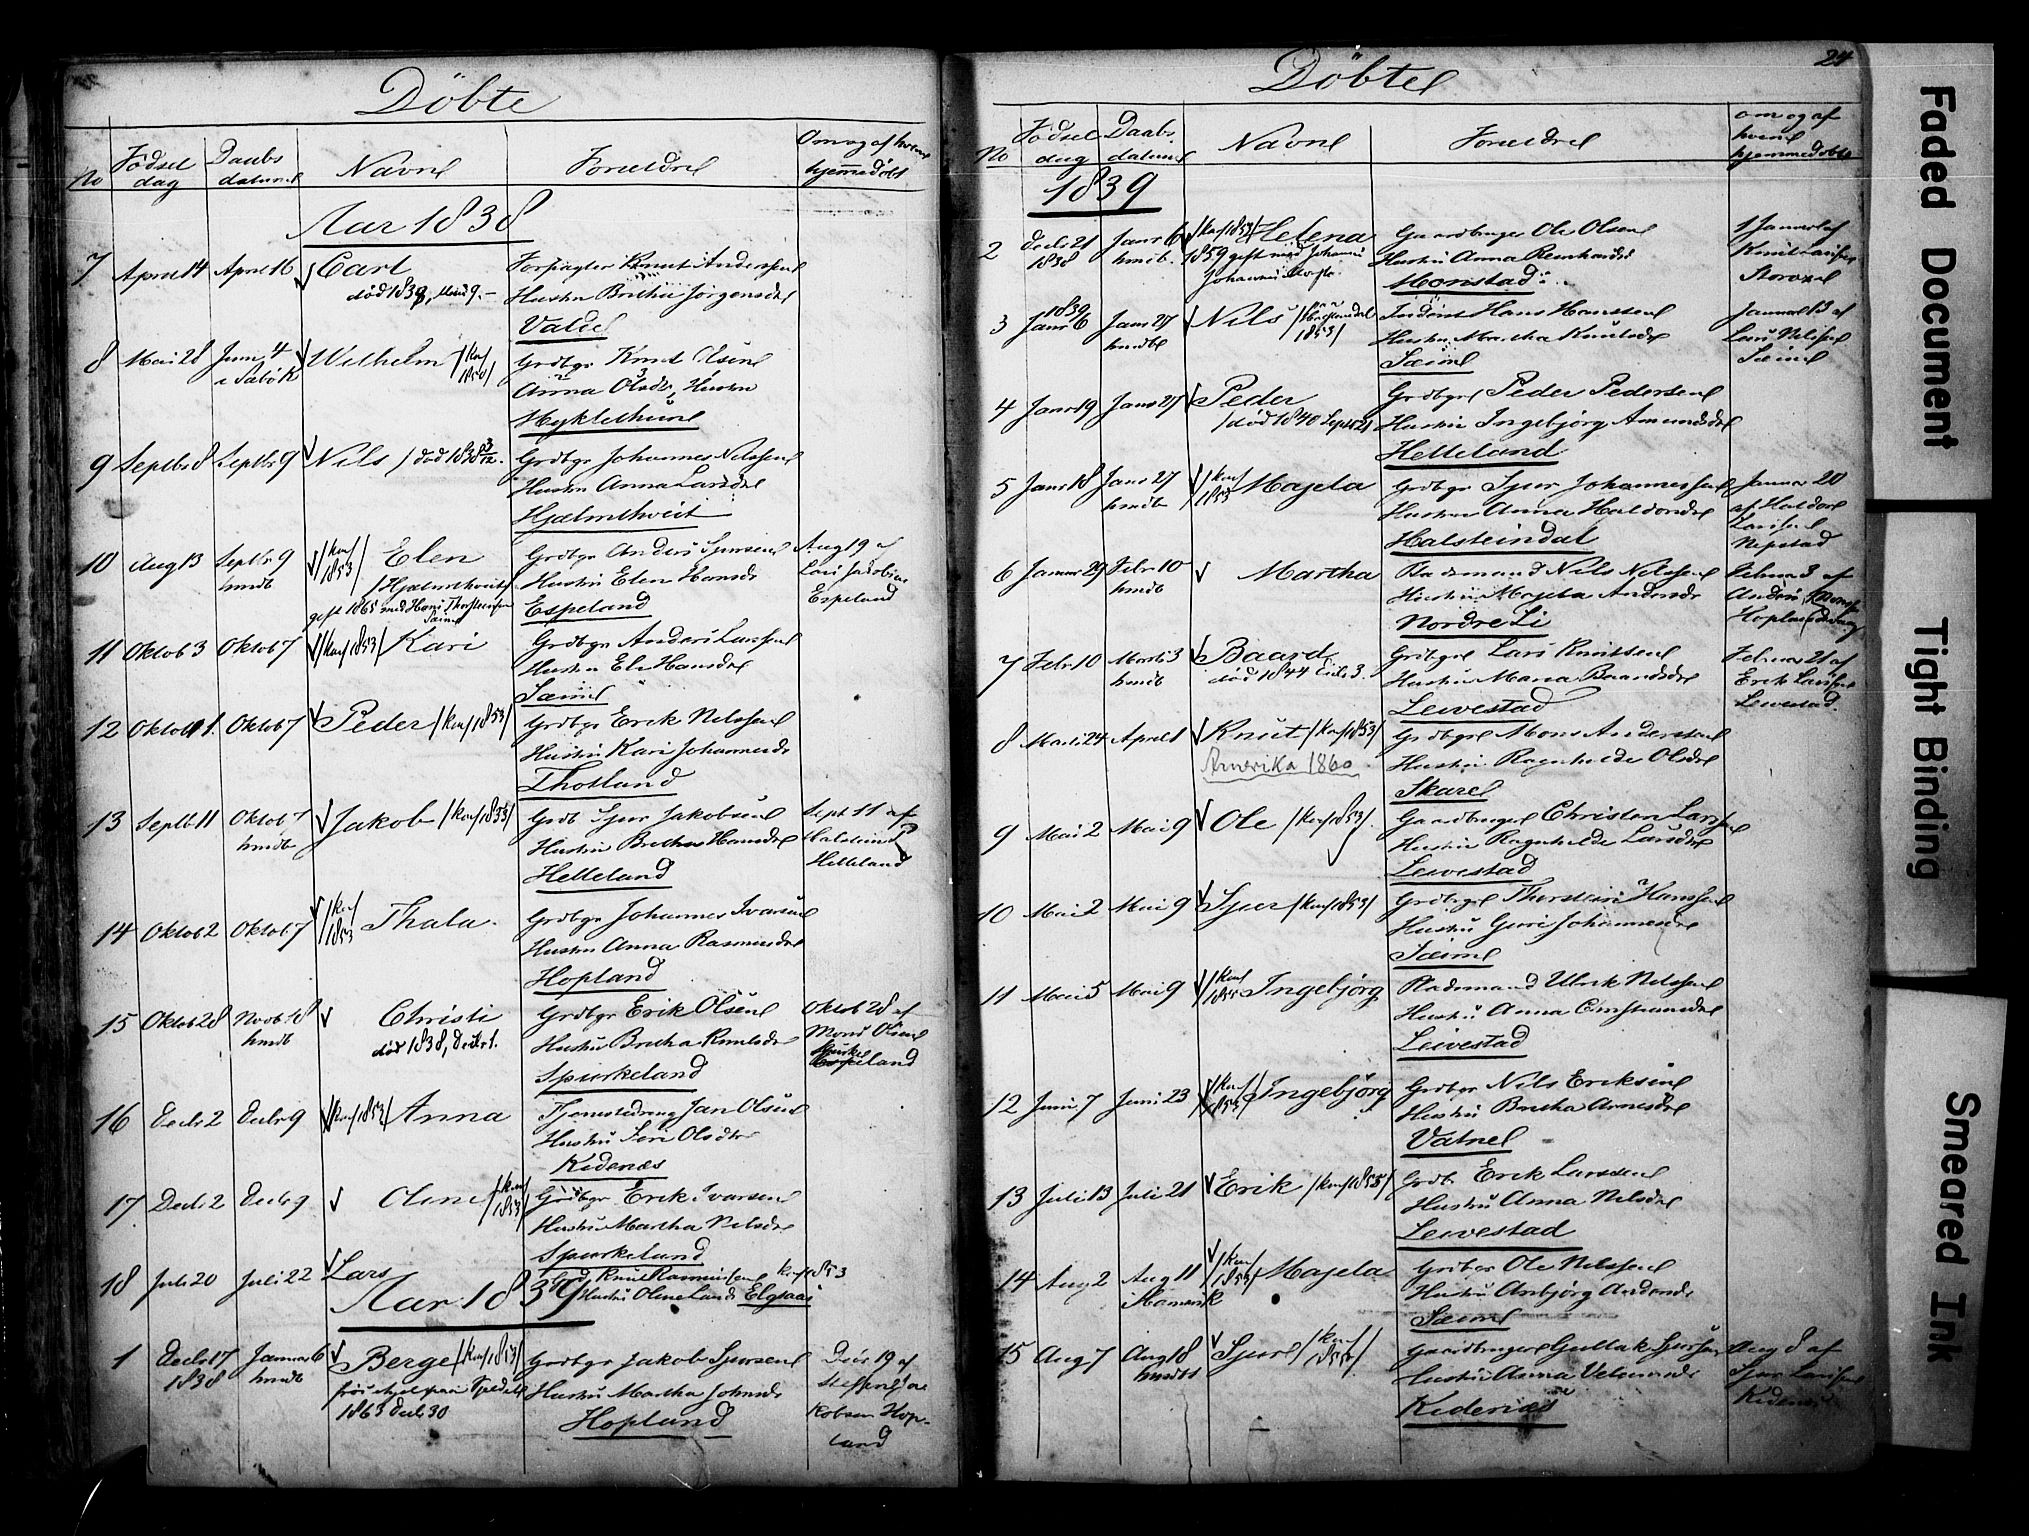 Döbte
No
Födsel dag
Daabs datum
Navn
Foreldre
Om og af hvem hjemmedöbt
Aar 1838
7 April 14 April 16 Carl
död 1839
Forpagter Knut Andersen
Hustru Brithe Jörgensdr
8 Mai 28 Juni 4 Wilhelm
Grdbgr Knut Olsen
Anna Olsdr, Hustru
Myklethun
9 Septbr 8 Septbr 9 Nils / död 1838 3/12
Grdbgr Johannes Nilssen
Hustru Anna Larsdr
Hjælmthveit
10 Aug 13 Septbr 9 hmdb /Kon 1853/ Elen
/Hjælmthveit/
gift 1865 med Hans Thorsteinsen Sæim
Grdbgr Anders Sjursen
Hustru Elen Hansdr
Espeland
Aug 19 af
Lars Jakobsen
Espeland
11 Oktob 3 Oktob 7 /Kon 1853/ Kari
Grdbgr Anders Larssen
Hustru Eli Hansdr
Sæim
12 Oktob 1. Oktob 7 Peder /Kon 1853/
Grdbgr Erik Nilssen
Hustru Kari Johannesdr
Thotland
13 Septb 11 Oktob 7 hmdb Jakob /Kon 1853/
Grdb Sjur Jakobsen
Hustru Brithe Hansdr
Helleland
Sept 11 af
Halstein
Helleland
14 Oktob 2 Oktob 7 /Kon 1853 Thala
Grdbgr Johannes Ivarsen
Hustru Anna Rasmusdr
Hopland
15 Oktob 28 Novb 18 hmdb Christi
död 1838, Decbr 1.
Grdbgr Erik Olsen
Hustru Britha Knutsdr
Spurkeland
Oktob 28 af
Mons Olsen
Spurkeland
16 Decbr 2 Decbr 9 /Kon 1853/ Anna
Jan Olsen
Hustru Siri Olsdtr
Kidenæs
17 Decbr 2 Decbr 9 Oline /Kon 1853/
Grdbgr Erik Ivarsen
Hustru Martha Nilsdr
Spurkeland
18 Juli 20 Juli 22 Lars
Grd Knut Rasmussen Kon 1853
Hustru Oline Larsdr Elgsaas
Aar 1839
1 Decbr 17 1838 Januar 6 hmdb Berge /Kon 1853/
1863 Decbr 30
Grdbgr Jakob Sjursen
Hustru Martha Johnsdr
Hopland
Decbr 19 af
Steffen Ja
kobsen Hop-
land
24
Döbte
No
Födsel dag
Daabs datum
Navn
Foreldre
om og af hvem hjemmedöbte
1839
2 Decbr 21 1838 Janr 6 hmdb /Kon 1854/ Helena
1859 gift med Johannes
Gaardbruger Ole Olsen
Hustru Anna Reinhardsdr
Monstad
1 Januar af
Knut Larssen
3 1839 Janr 6 Janr 27 hmdbt Nils /Kon 1853/
Hans Hanssen
Hustru Martha Knutsdr
Sæim
Januar 13 af
Lars Nilssen
Sæim
4 Janr 19 Janr 27 Peder
/död 1840 Septbr 21
Grdbgr Peder Pedersen
Hustru Ingebjörg Amundsdr
Helleland
5 Janr 18 Janr 27 hmdb /Kon 1853 Majela
Grdbgr Sjur Johannessen
Hustru Anna Haldorsdr
Halsteindal
Januar 20
af Haldor
Larssen
Nepstad
6 Januar 29 Febr 10 hmdb Martha
Pladsmand Nils Nilssen
Hustru Majela Andersdr
Nordre Li
Februar 3 af
Anders
7 Febr 10 Marts 3 hmdb Baard
död 1844
Grdbgr Lars Knutssen
Hustru Maria Baardsdr
Leivestad
Februar 21 af
Erik Larssen
Leivestad.
8 Marts 24 April 1 Knut /Kon 1853/
Amerika 1860
Grdbgr Mons Andersen
Hustru Ragnhilde Olsdr
Skare
9 Mai 2 Mai 9 Ole /Kon 1853/
Gaardbruger Christen Larssen
Hustru Ragnhilde Larsdtr
Leivestad
10 Mai 2 Mai 9 Sjur /Kon 1853/
Grdbgr Thorstein Hanssen
Hustru Guri Johannesdr
Sæim
11 Mai 5 Mai 9 /Kon Ingebjörg
Pladsmand Ulrik Nilssen
Hustru Anna Christiansdr
Leivestad
12 Juni 7 Juni 23 /Kon Ingebjörg
Grdbgr Nils Eriksen
Hustru Britha Arnesdr
Vatne
13 Juli 13 Juli 21 Erik /Kon 1855/
Grdb Erik Larssen
Hustru Anna Nilsdr
Leivestad
14 Aug 2 Aug 11 /Kon 1853/ Majela
Grdbgr Ole Nilssen
Hustru Anbjörg Andersdr
Sæim
15 Aug 7 Aug 18 hmdbt Sjur /Kon
Gaardbruger Gullak Sjursen
Hustru Anna
Kidenæs
Aug 8 af
Sjur Larssen
Kidenæs
Faded Document
Tight Binding
Smeared Ink